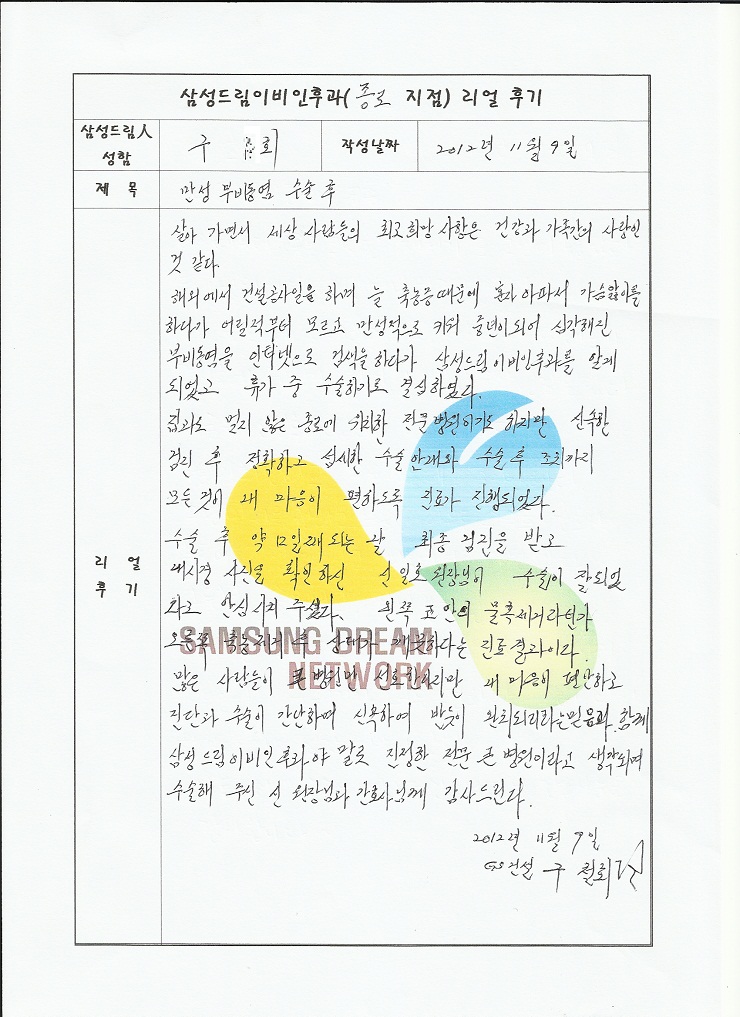 삼성드림이비인후과(종로 지점) 리얼 후기
삼성드림人 성함 구 회 작성날짜 2012년 11월 9일
제 목 만성 부비동염 수술 후
리 얼 후 기
살아 가면서 세상 사람들의 최고 희망 사항은 건강과 가족간의 사랑인
것 같다.
해외에서 건설공사일을 하며 늘 축농증때문에 혼자 아파서 가슴앓이를
하다가 어릴적부터 모르고 만성적으로 키워 중년이 되어 심각해진
부비동염을 인터넷으로 검색을 하다가 삼성드림이비인후과를 알게
되었고 휴가 중 수술하기로 결심하였다.
멀지 않은 종로에 위치한 전문병원이기도 하지만 신속한
검진 후 정확하고 섬세한 수술안내와 수술 후 조치까지
모든것이 내 마음이 편하도록 진료가 진행되었다.
수술 후 약 12일째 되는 날 최종 검진을 받고
내시경 사진을 확인하신 선일호 원장님이 수술이 잘되었
다고 안심시켜 주셨다. 왼쪽 안의 물혹제거라던가
오른쪽 축농제거 후 상태가 깨끗하다는 진료결과이다.
SAMSUNG DREAM
NETWORK
많은 사람들이 병원만 선호한지만 내 마음이 편안하고
진단과 수술이 간단하며 신속하여 반듯이 완치되리라는믿음과 함께
삼성드림이비인후과야 말로 진정한 전문 큰 병원이라고 생각되며
수술해 주신 선 원장님과 간호사님께 감사드린다.
2012년 11월 9일
GS건설 구 회